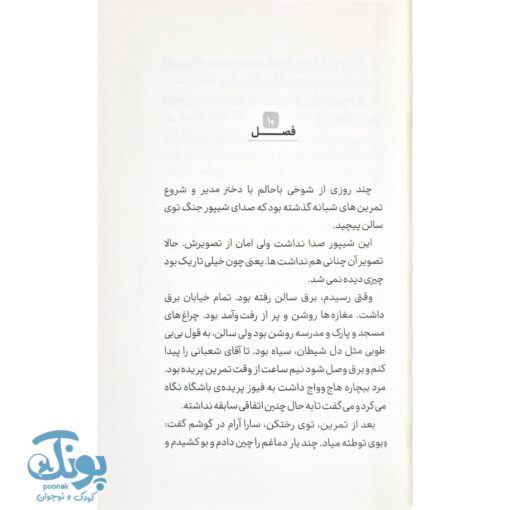 ۱۰
فصل
چند روزی از شوخی باحالم با دختر مدیر و شروع
تمرین‌های شبانه گذشته بود که صدای شیپور جنگ توی
سالن پیچید.
این شیپور صدا نداشت ولی امان از تصویرش. حالا
تصویر آن چنانی هم نداشت‌ها. یعنی چون خیلی تاریک بود
چیزی دیده نمی‌شد.
وقتی رسیدم، برق سالن رفته بود. تمام خیابان برق
داشت. مغازه‌ها روشن و پر از رفت‌وآمد بود. چراغ‌های
مسجد و پارک و مدرسه روشن بود ولی سالن، به قول بی‌بی
طوبی مثل دل شیطان، سیاه بود. تا آقای شعبانی را پیدا
کنم و برق وصل شود نیم ساعت از وقت تمرین پریده بود.
مرد بیچاره هاج‌وواج داشت به فیوز پریده‌ی باشگاه نگاه
می‌کرد و می‌گفت تا به حال چنین اتفاقی سابقه نداشته.
بعد از تمرین، توی رختکن، سارا آرام در گوشم گفت:
«بوی توطئه میاد. چند بار دماغم را چین دادم و بو کشیدم و
پونک
puonak
کودک و نوجوان